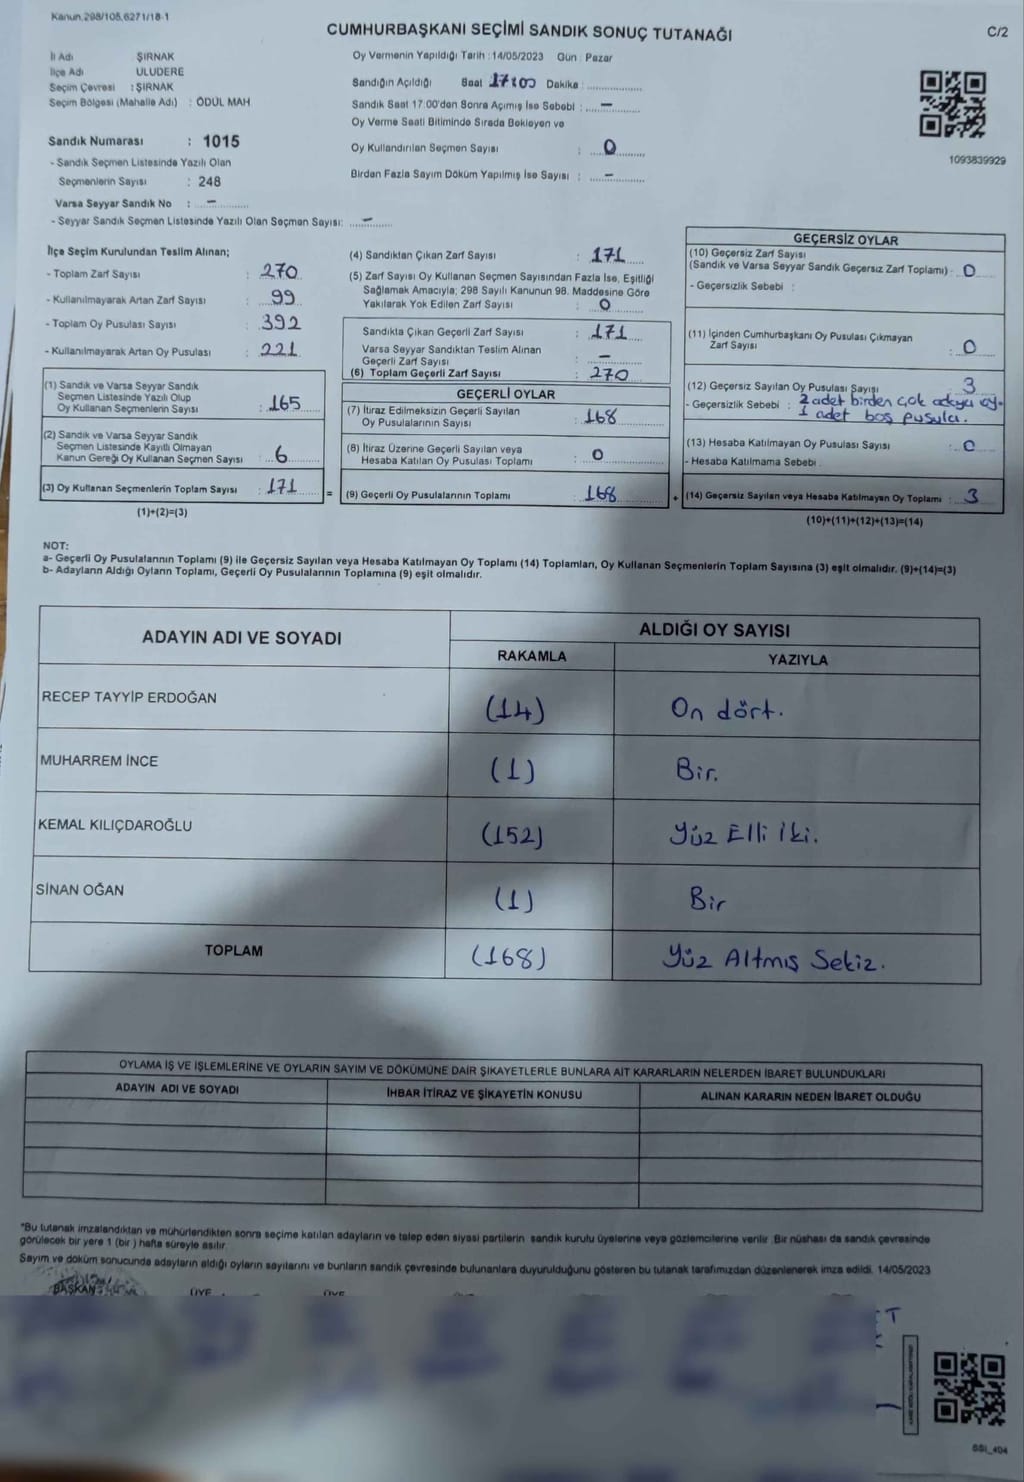 Kanun.298/105,6271/18-1
CUMHURBAŞKANI SEÇİMİ SANDIK SONUÇ TUTANAĞI
C/2
İl Adı ŞIRNAK
İlçe Adı ULUDERE
Seçim Çevresi : ŞIRNAK
Seçim Bölgesi (Mahalle Adı) : ÖDÜL MAH
Oy Vermenin Yapıldığı Tarih : 14/05/2023 Gün : Pazar
Sandığın Açıldığı Saat 17:00 Dakika :
Sandık Saat 17.00'den Sonra Açımış İse Sebebi : -
Oy Verme Saati Bitiminde Sırada Bekleyen ve
Oy Kullandırılan Seçmen Sayısı : 0
Birden Fazla Sayım Döküm Yapılmış İse Sayısı : -
1093839929
Sandık Numarası : 1015
- Sandık Seçmen Listesinde Yazılı Olan
Seçmenlerin Sayısı : 248
Varsa Seyyar Sandık No : -
- Seyyar Sandık Seçmen Listesinde Yazılı Olan Seçmen Sayısı: -
İlçe Seçim Kurulundan Teslim Alınan;
- Toplam Zarf Sayısı : 270
- Kullanılmayarak Artan Zarf Sayısı : 99
- Toplam Oy Pusulası Sayısı : 392
- Kullanılmayarak Artan Oy Pusulası : 221
(1) Sandık ve Varsa Seyyar Sandık
Seçmen Listesinde Yazılı Olup
Oy Kullanan Seçmenlerin Sayısı : 165
(2) Sandık ve Varsa Seyyar Sandık
Seçmen Listesinde Kayıtlı Olmayan
Kanun Gereği Oy Kullanan Seçmen Sayısı : 6
(3) Oy Kullanan Seçmenlerin Toplam Sayısı : 171
(1)+(2)=(3)
(4) Sandıktan Çıkan Zarf Sayısı : 171
(5) Zarf Sayısı Oy Kullanan Seçmen Sayısından Fazla İse, Eşitliği
Sağlamak Amacıyla; 298 Sayılı Kanunun 98. Maddesine Göre
Yakılarak Yok Edilen Zarf Sayısı : 0
Sandıkta Çıkan Geçerli Zarf Sayısı : 171
Varsa Seyyar Sandıktan Teslim Alınan
Geçerli Zarf Sayısı : -
(6) Toplam Geçerli Zarf Sayısı : 270
GEÇERLİ OYLAR
(7) İtiraz Edilmeksizin Geçerli Sayılan
Oy Pusulalarının Sayısı : 168
(8) İtiraz Üzerine Geçerli Sayılan veya
Hesaba Katılan Oy Pusulası Toplamı : 0
= (9) Geçerli Oy Pusulalarının Toplamı : 168
GEÇERSİZ OYLAR
(10) Geçersiz Zarf Sayısı
(Sandık ve Varsa Seyyar Sandık Geçersiz Zarf Toplamı) : 0
- Geçersizlik Sebebi :
(11) İçinden Cumhurbaşkanı Oy Pusulası Çıkmayan
Zarf Sayısı : 0
(12) Geçersiz Sayılan Oy Pusulası Sayısı : 3
- Geçersizlik Sebebi : 2 adet birden çok adaya oy.
1 adet boş pusula.
(13) Hesaba Katılmayan Oy Pusulası Sayısı : 0
- Hesaba Katılmama Sebebi :
+ (14) Geçersiz Sayılan veya Hesaba Katılmayan Oy Toplamı : 3
(10)+(11)+(12)+(13)=(14)
NOT:
a- Geçerli Oy Pusulalarının Toplamı (9) ile Geçersiz Sayılan veya Hesaba Katılmayan Oy Toplamı (14) Toplamları, Oy Kullanan Seçmenlerin Toplam Sayısına (3) eşit olmalıdır. (9)+(14)=(3)
b- Adayların Aldığı Oyların Toplamı, Geçerli Oy Pusulalarının Toplamına (9) eşit olmalıdır.
ADAYIN ADI VE SOYADI
ALDIĞI OY SAYISI
RAKAMLA YAZIYLA
RECEP TAYYİP ERDOĞAN (14) On dört.
MUHARREM İNCE (1) Bir.
KEMAL KILIÇDAROĞLU (152) Yüz Elli İki.
SİNAN OĞAN (1) Bir
TOPLAM (168) Yüz Altmış Sekiz.
OYLAMA İŞ VE İŞLEMLERİNE VE OYLARIN SAYIM VE DÖKÜMÜNE DAİR ŞİKAYETLERLE BUNLARA AİT KARARLARIN NELERDEN İBARET BULUNDUKLARI
ADAYIN ADI VE SOYADI İHBAR İTİRAZ VE ŞİKAYETİN KONUSU ALINAN KARARIN NEDEN İBARET OLDUĞU
*Bu tutanak imzalandıktan ve mühürlendikten sonra seçime katılan adayların ve talep eden siyasi partilerin sandık kurulu üyelerine veya gözlemcilerine verilir. Bir nüshası da sandık çevresinde
görülecek bir yere 1 (bir) hafta süreyle asılır.
Sayım ve döküm sonucunda adayların aldığı oyların sayılarını ve bunların sandık çevresinde bulunanlara duyurulduğunu gösteren bu tutanak tarafımızdan düzenlenerek imza edildi. 14/05/2023
BAŞKAN ÜYE ÜYE